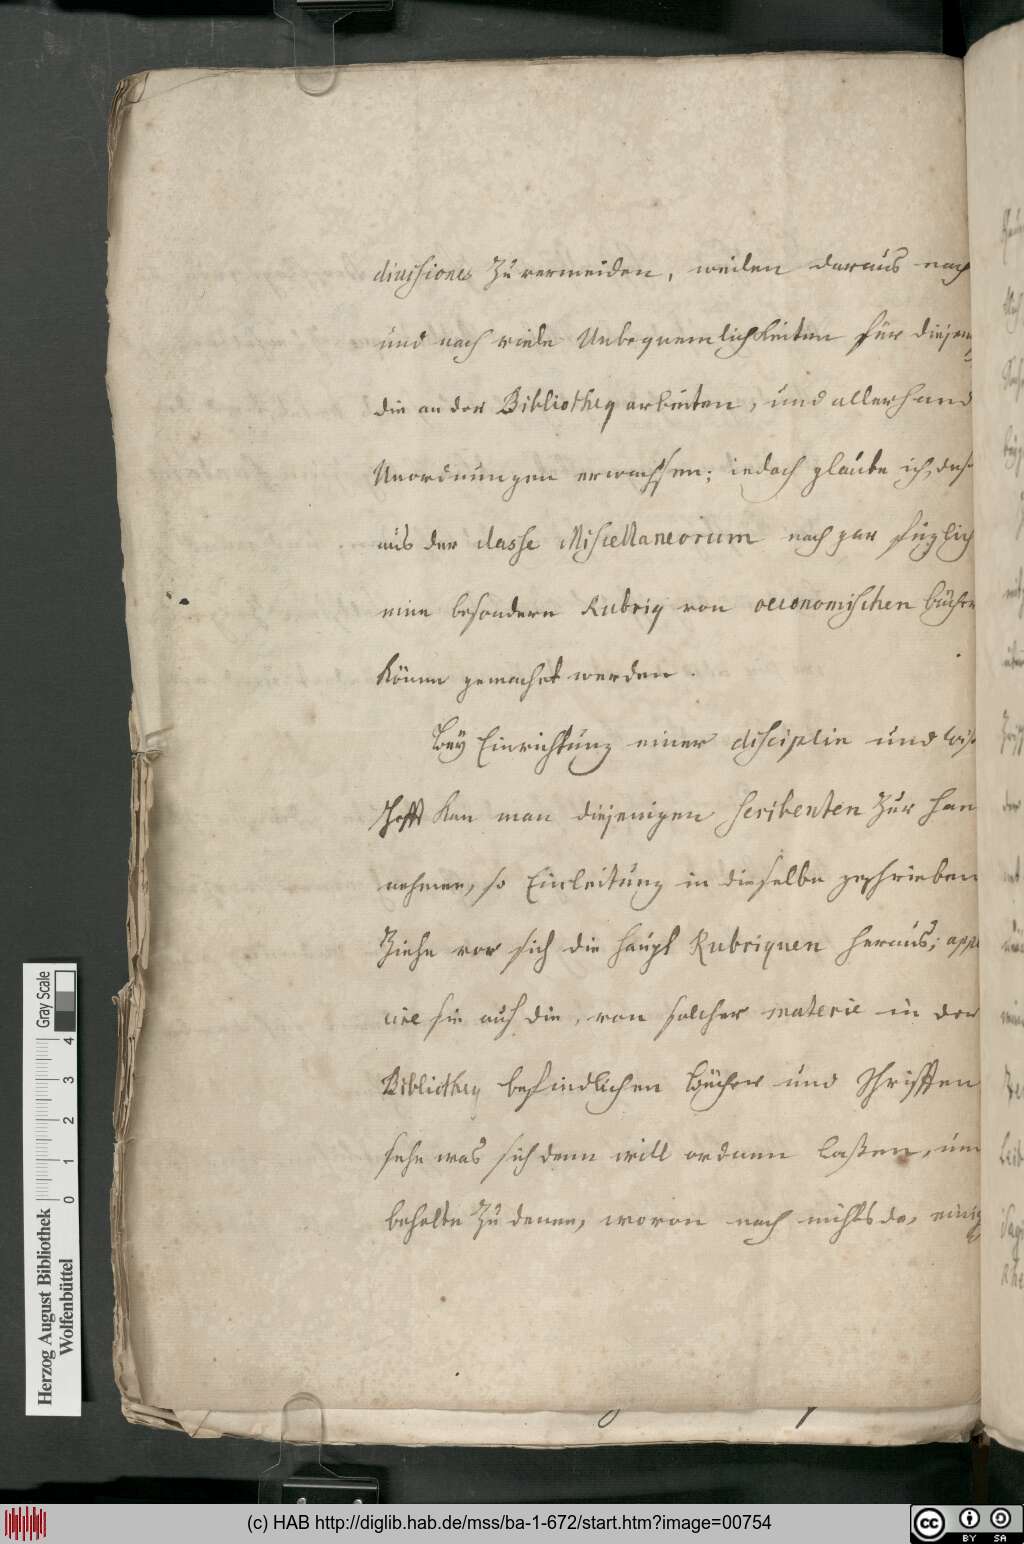 divisiones zu vermeiden, weilen daraus nach
und nach viele Unbequemlichkeiten für diejeni
die an der Bibliotheq arbeiten, und allerhand
Unordnungen erwachsen; iedoch glaube ich, daß
aus der classe Miscellaneorum noch gar füglich
eine besondere Rubriq von oeconomischen bücher
könne gemachet werden.
Bey Einrichtung einer disciplin und Wiß
schafft kan man diejenigen scribenten zur Han
nehmen, so Einleitung in dieselbe geschrieben
Ziehe vor sich die haupt Rubriquen heraus; appl
cire sie auf die, von solcher materie in der
Bibliotheq befindlichen Bücher und Schrifften
sehe was sich denn will ordnen laßen, un
behalte zu denen, wovon noch nichts da, einig
Herzog August Bibliothek
Wolfenbüttel
0 1 2 3 4
Gray Scale
(c) HAB http://diglib.hab.de/mss/ba-1-672/start.htm?image=00754
cc BY SA